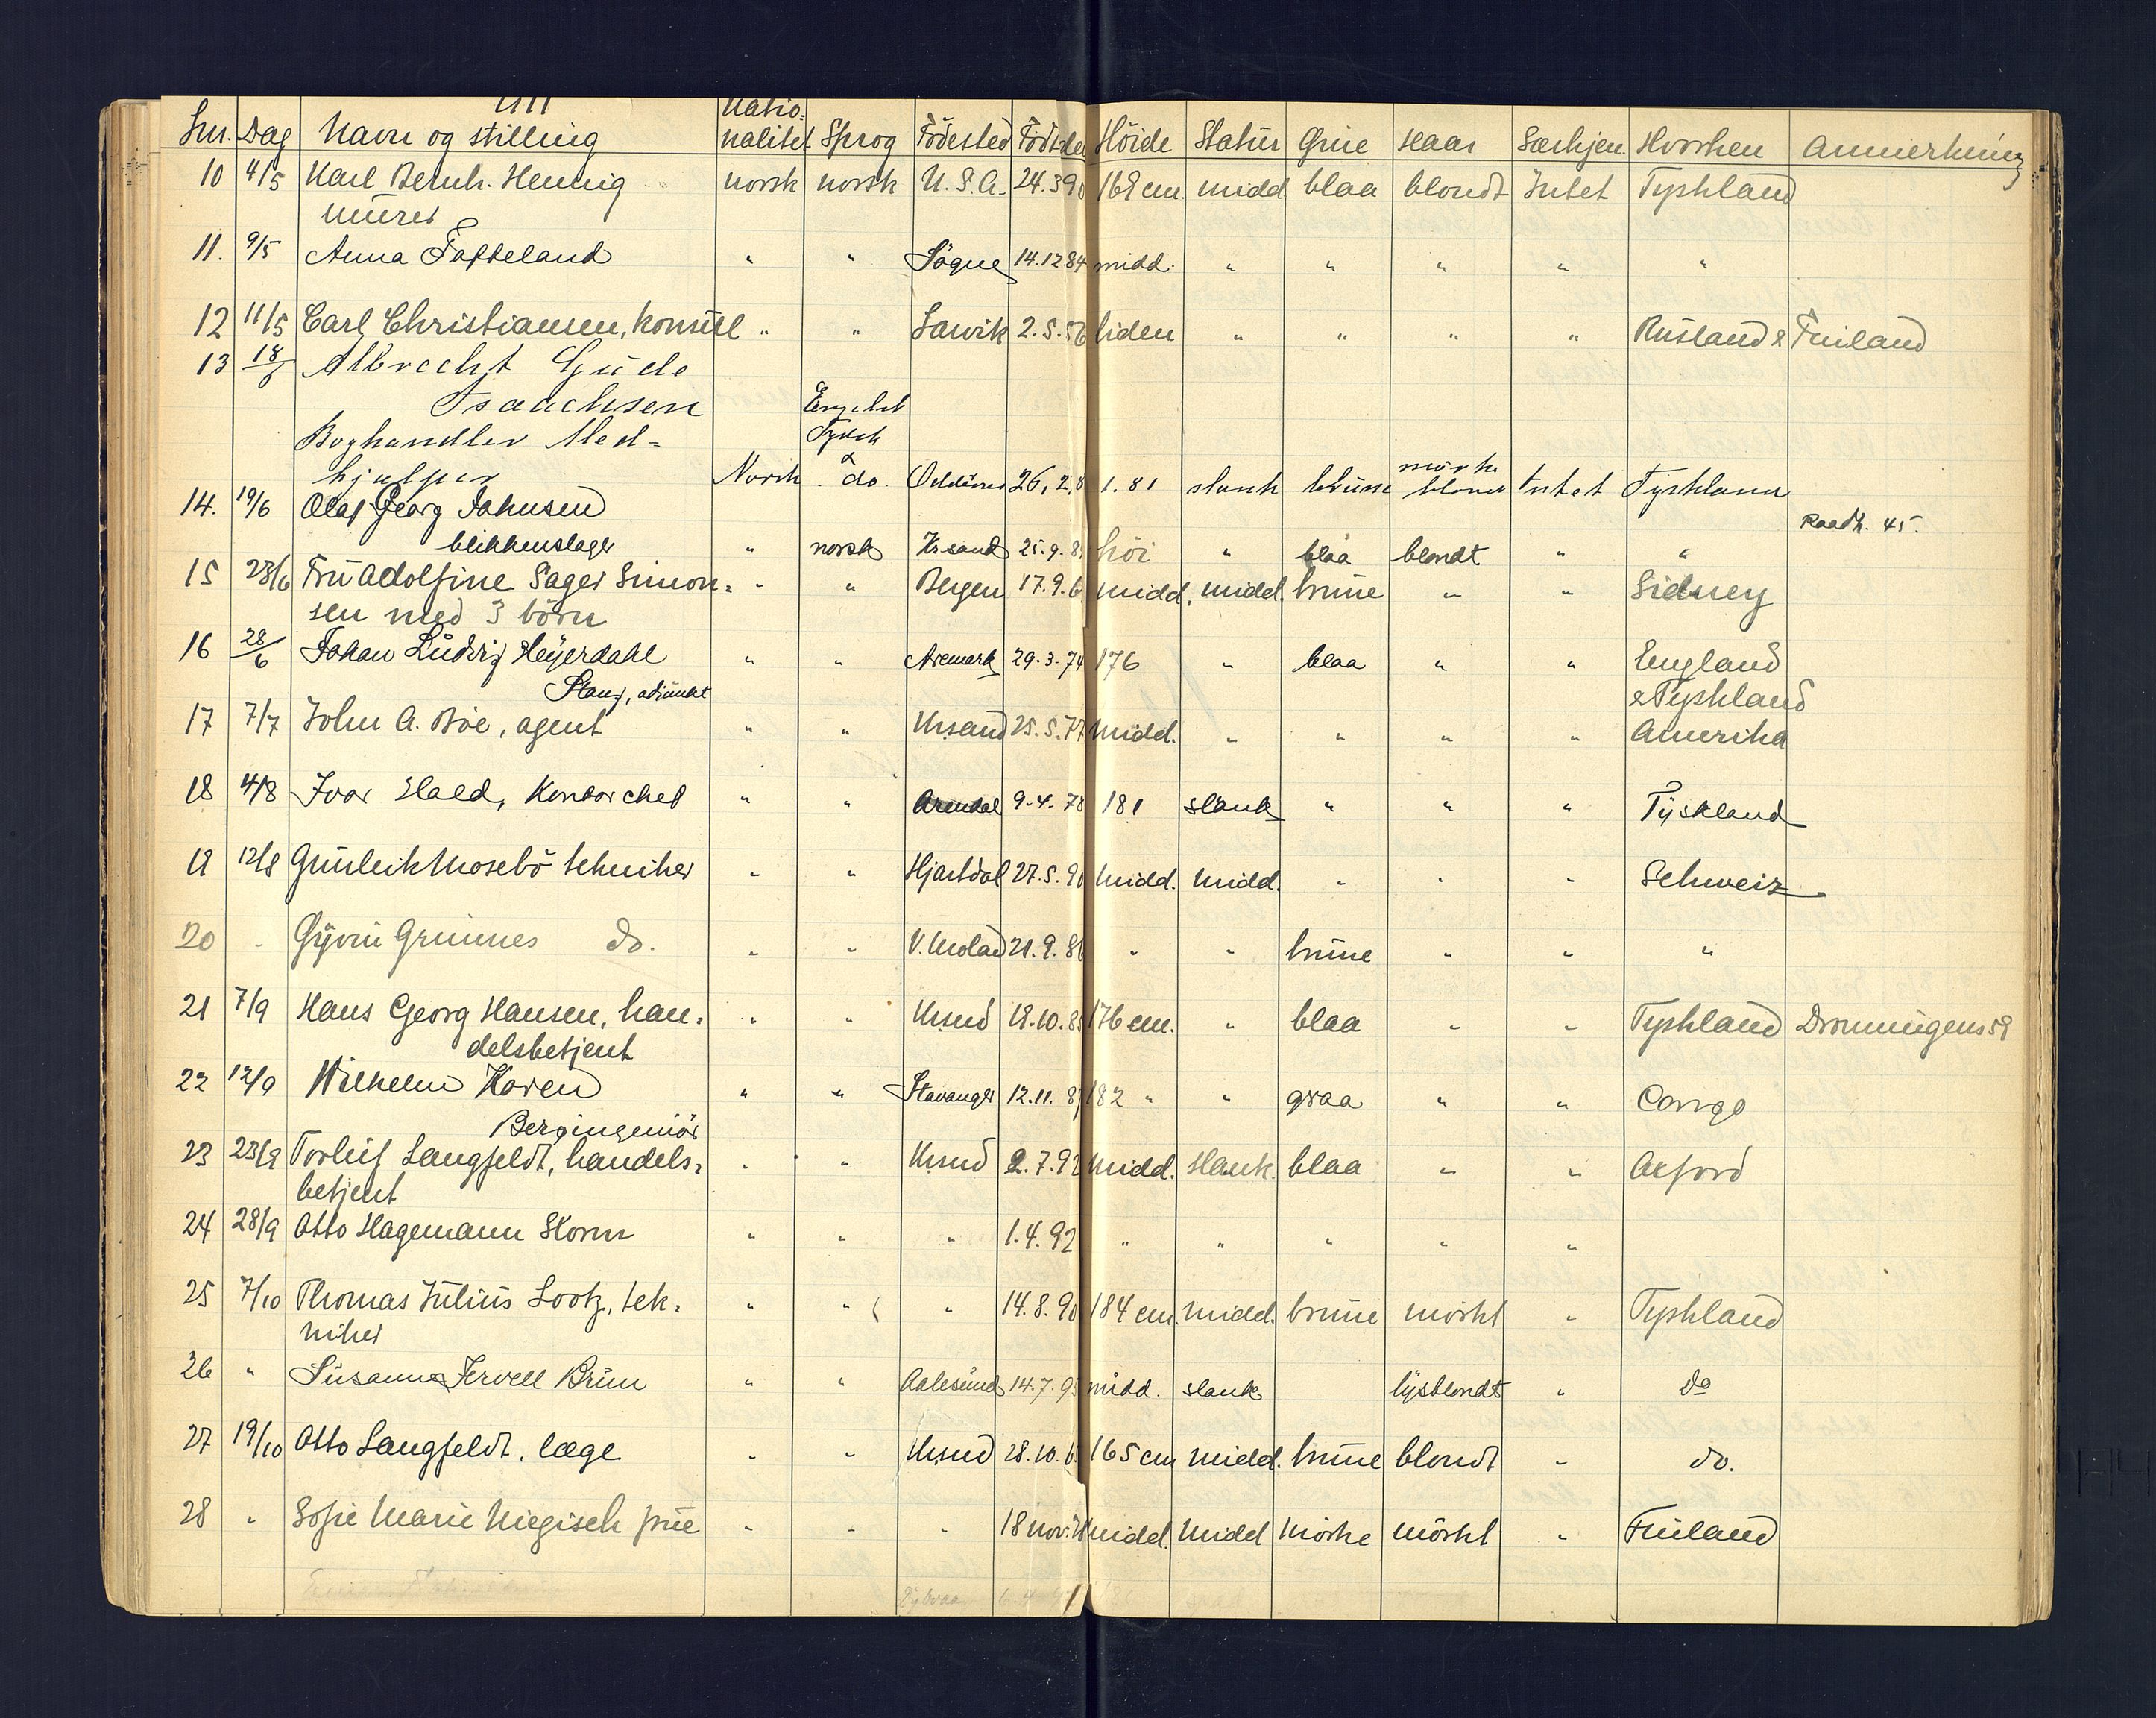 1911
Lnr. Dag Navn og stilling Natio-nalitet Sprog Födested Födt Höide Statur Öine Haar Særkjen Hvorhen Anmerkning
10 4/5 Karl Bernh. Hennig norsk norsk U.S.A. 24.3 90 169 cm. midd blaa blondt Intet Tyskland
murer
11. 9/5 Anna Tafteland " " Sögne 14.12 84 midd. " " " " "
12 11/5 Carl Christiansen, konsul " " Larvik 2.5.56 liden " " " " Rusland & Finland
13 18/5 Albrecht Gude
Isaachsen Engelsk
Boghandler Med- Tydsk
hjælper Norsk & do. 26.2.8 1.81 slank brune mörke blond Intet Tyskland
14. 19/6 Olaf Georg Johnsen Raadh. 45.
blikkenslager " norsk Krsand 25.9.8 höi " blaa blondt " "
15 23/6 Fru Adolfine Sager Simon- " " Bergen 17.9.6 midd. midd. brune " " Sidney
sen med 3 börn
16 28/6 Johan Ludvig Heyerdahl " " Aremark 29.3.74 176 " blaa " " England
Stang, adjunkt & Tyskland
17 7/7 John A. Böe, agent " " Krsand 25.5.77 Midd. " " " " Amerika
18 4/8 Ivar Hald, Kontorchef " " Arendal 9.4.78 181 slank " " " Tyskland
19 12/8 Gunleik Mosebö tekniker " " Hjartdal 27.5.90 Midd. Midd. " " " Schweiz
20 " Gjvin Grimnes do. " " V. Moland 21.9.86 " " brune " " "
21 7/9 Hans Georg Hansen, han- " " Krsnd 18.10.85 176 cm. " blaa " " Tyskland Dronningens 59
delsbetjent
22 12/9 Wilhelm Haren " " Stavanger 12.11.87 182 " " graa " " Congo
Bergingeniör
23 23/9 Torleif Langfeldt, handels- " " Krsnd 2.7.92 Midd. Slank. blaa " " Oxford
betjent
24 28/9 Otto Hagemann Storm " " " 1.4.92 " " " " "
25 7/10 Thomas Julius Lootz, tek- " " " 14.8.90 184 cm. midd. brune mörkt " Tyskland
niker
26 " Susanne Jervell Brun " " Aalesund 14.7.93 midd. slank lysblondt " do
27 19/10 Otto Langfeldt, læge " " Krsnd 28.10.6 165 cm midd. brune blondt " do.
28 " Sofie Marie Niegisch frue " " " 18 nov. 78 midd. Midd Mörke mörkt " Finland